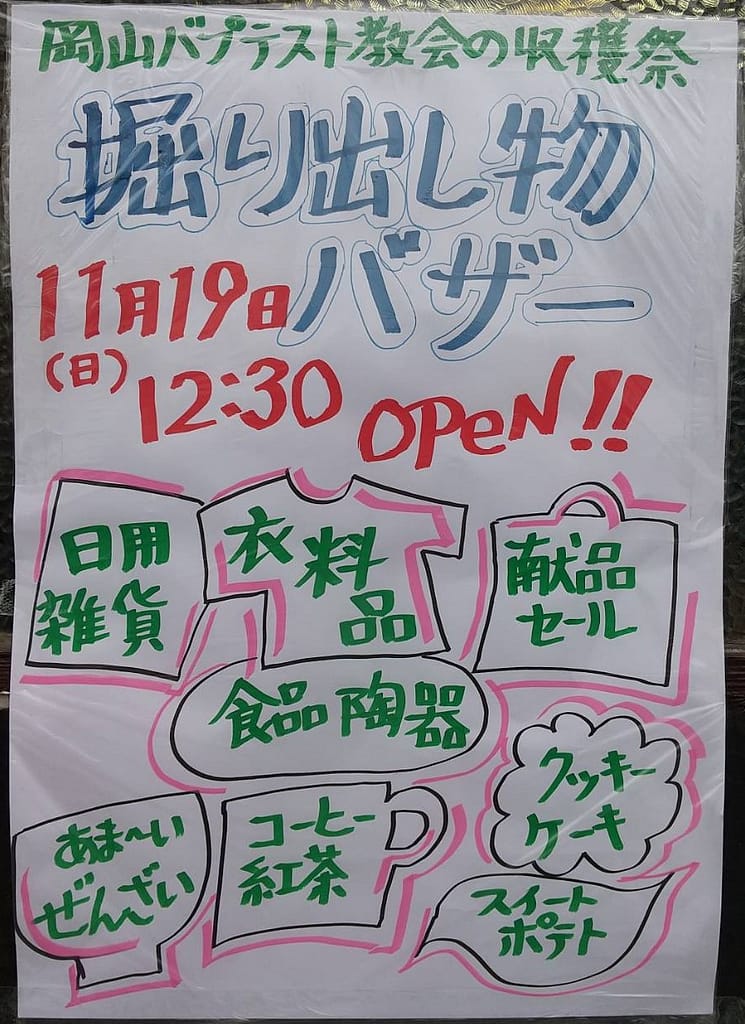 岡山バプテスト教会の収穫祭
掘り出し物
バザー
11月19日
(日)
12:30
OPeN!!
日用
雑貨
衣料
品
献品
セール
食品 陶器
クッキー
ケーキ
あま〜い
ぜんざい
コーヒー
紅茶
スイート
ポテト